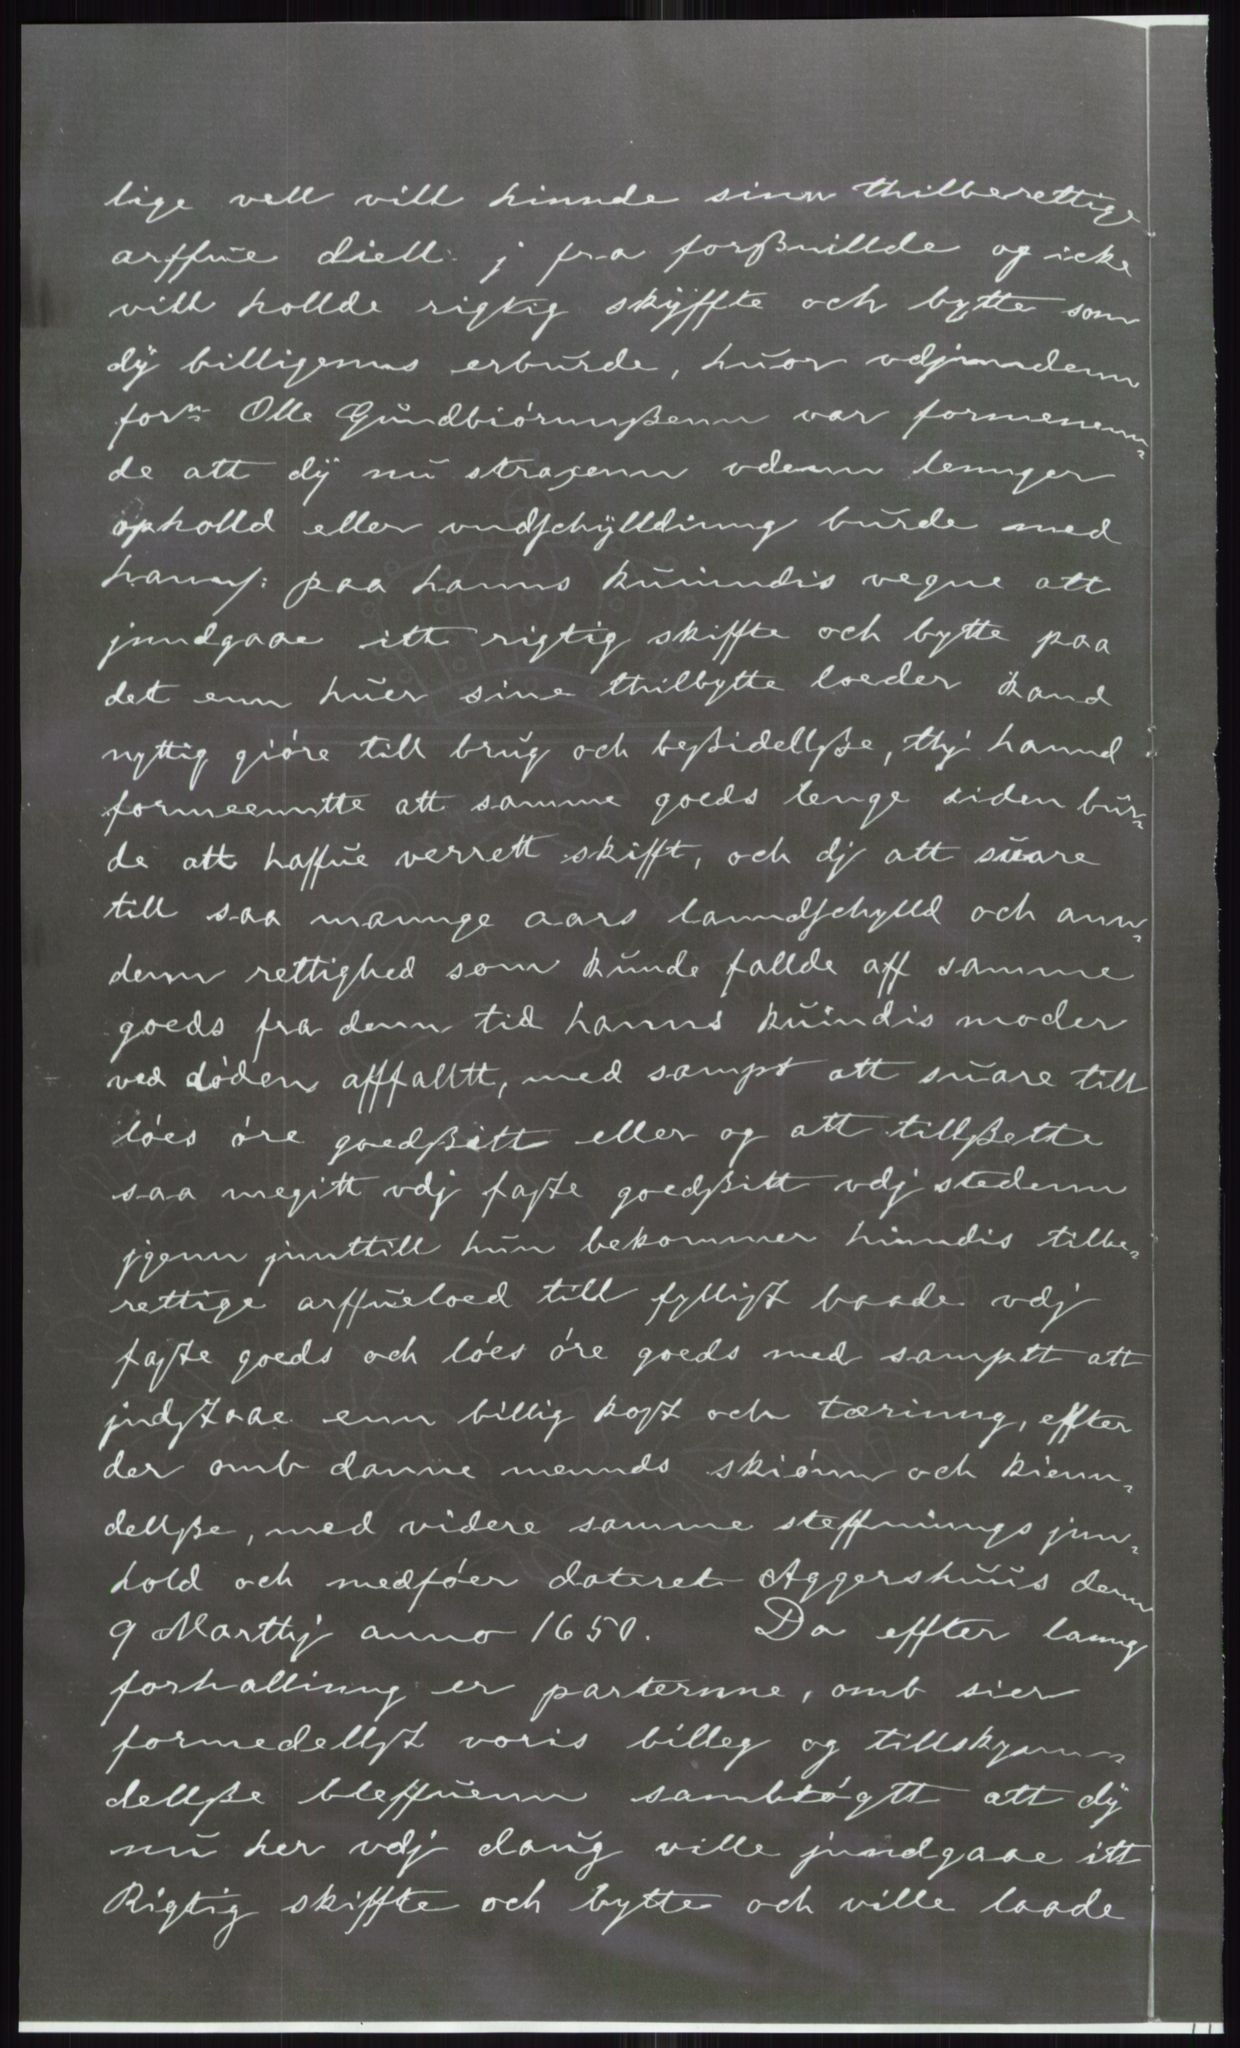 lige vell vill hinnde sinn thilberettige
arffue diell j fra forßuillde og icke
vill hollde rigtig skÿffte och bytte som
dÿ billigenns erburde, huor vdjnndenn
forn Olle Gundbiórnnßenn var formenenn-
de att dÿ nu straxenn vdenn lennger
ophold eller vndschÿlldinng burde med
hannß: paa hanns kuinndis vegne att
jnndgaae itt rigtig skiffte och bytte paa
det enn huer sine thilbytte loeder kand
nyttig gióre till brug och beßidellße, thj hannd
formeenntte att samme goeds lenge siden bur-
de att haffue verrett skifft, och dj att suare
till saa mannge aars lanndschylld och ann-
denn rettighed som kunde fallde aff samme
goeds fra denn tid hanns kuindis moder
ved dóden affallt, med sampt att suare till
lóes óre goedßitt eller og att tillßette
saa megitt vdj faste goedßitt vdj stedenn
jgenn jnnttill hun bekommer hinndis tilbe-
rettige arffueloed till fylligst baade vdj
faste goeds och lóes óre goeds med samptt att
jndstaae enn billig kost och tærinng, effter
der omb danne mennds skiónn och kienn-
dellße, med videre samme steffninngs jnn-
hold och medfóer dateret Aggershuus denn
9 Marthj anno 1650. Da effter lanng
forhallinng er parternne, omb sier
formedellst voris billeg og tillskynn-
dellße bleffuenn sambtógtt att dÿ
nu her vdj daug ville jnndgaae itt
Rigtig skiffte och bytte och ville laade